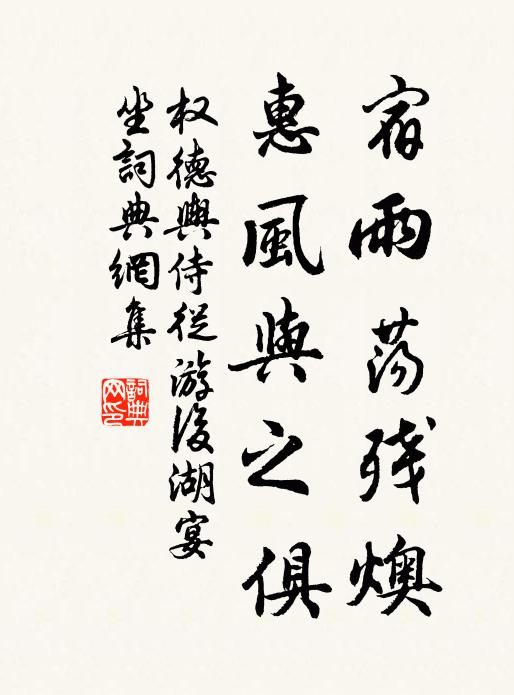 宿雨荡残燠
惠風與之俱
权德輿侍從游後湖宴
坐詞典網集
詞典網印